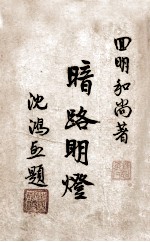 四明和尚著
暗路明燈
沈鴻烈題